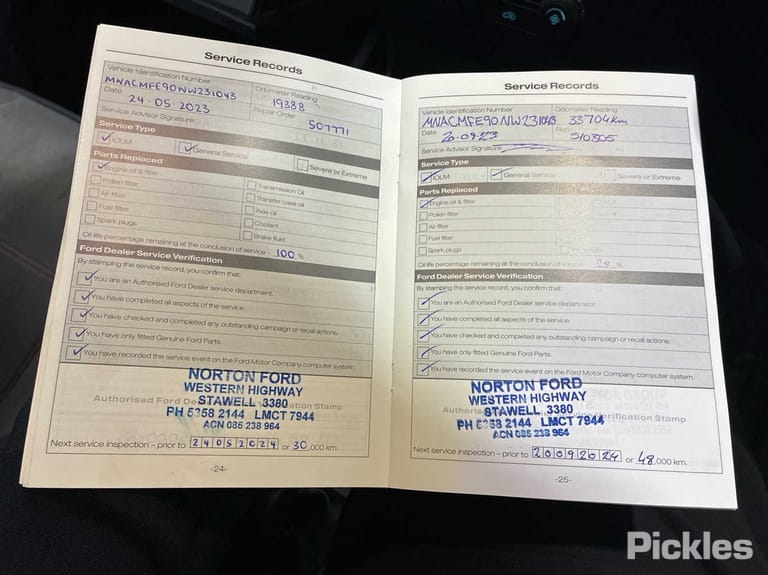 Service Records
Vehicle Identification Number Odometer Reading
MNACMFE90NW231043 19388
Date Repair Order
24.05.2023 507771
Service Advisor Signature
Service Type
IOLM General Service Severe or Extreme
Parts Replaced
Engine oil & filter
Pollen filter Transmission Oil
Air filter Transfer case oil
Fuel filter Axle oil
Spark plugs Coolant
Brake fluid
Oil life percentage remaining at the conclusion of service - 100 %
Ford Dealer Service Verification
By stamping the service record, you confirm that:
You are an Authorised Ford Dealer service department.
You have completed all aspects of the service.
You have checked and completed any outstanding campaign or recall actions.
You have only fitted Genuine Ford Parts.
You have recorded the service event on the Ford Motor Company computer system.
NORTON FORD
WESTERN HIGHWAY
STAWELL 3380
PH 5358 2144 LMCT 7944
ACN 085 238 964
Authorised Ford Verification Stamp
Next service inspection – prior to 24052024 or 30,000 km.
-24-
Service Records
Vehicle Identification Number Odometer Reading
MNACMFE90NW231043 33704km
Date
20.09.23 510805
Service Advisor Signature
Service Type
IOLM General Service Severe or Extreme
Parts Replaced
Engine oil & filter
Pollen filter
Air filter
Fuel filter
Spark plugs
Oil life percentage remaining at the conclusion of service - %
Ford Dealer Service Verification
By stamping the service record, you confirm that:
You are an Authorised Ford Dealer service department.
You have completed all aspects of the service.
You have checked and completed any outstanding campaign or recall actions.
You have only fitted Genuine Ford Parts.
You have recorded the service event on the Ford Motor Company computer system.
NORTON FORD
WESTERN HIGHWAY
STAWELL 3380
PH 5358 2144 LMCT 7944
ACN 085 238 964
Verification Stamp
Next service inspection – prior to 20092024 or 48,000 km.
-25-
Pickles